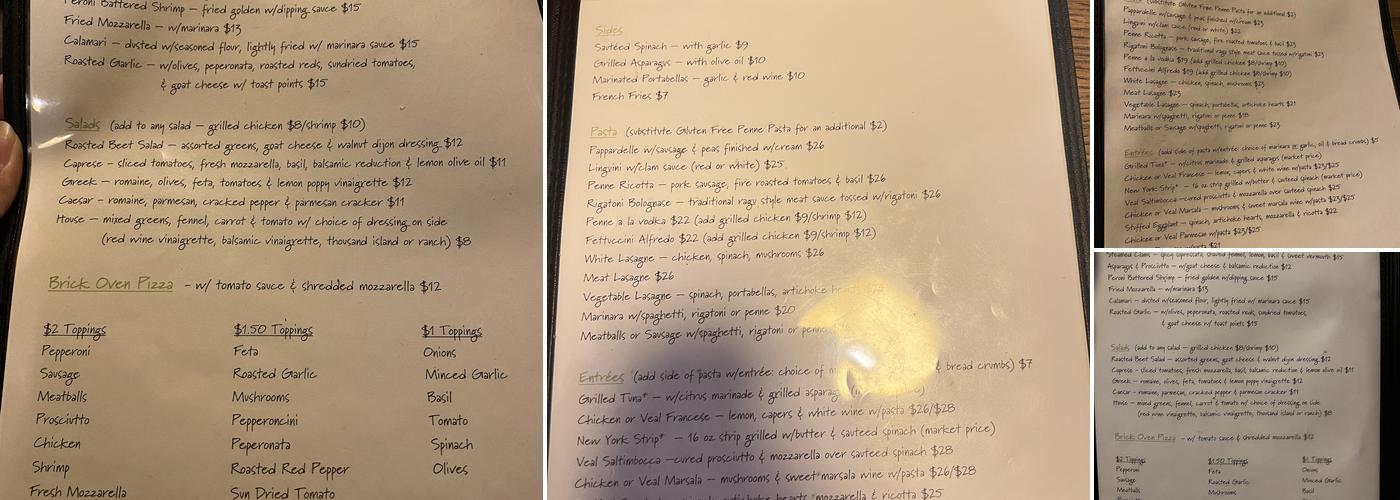 Peroni Battered Shrimp – fried golden w/dipping sauce $15
Fried Mozzarella – w/marinara $13
Calamari – dusted w/seasoned flour, lightly fried w/ marinara sauce $15
Roasted Garlic – w/olives, peperonata, roasted reds, sundried tomatoes,
& goat cheese w/ toast points $15
Salads (add to any salad – grilled chicken $8/shrimp $10)
Roasted Beet Salad – assorted greens, goat cheese & walnut dijon dressing $12
Caprese – sliced tomatoes, fresh mozzarella, basil, balsamic reduction & lemon olive oil $11
Greek – romaine, olives, feta, tomatoes & lemon poppy vinaigrette $12
Caesar – romaine, parmesan, cracked pepper & parmesan cracker $11
House – mixed greens, fennel, carrot & tomato w/ choice of dressing on side
(red wine vinaigrette, balsamic vinaigrette, thousand island or ranch) $8
Brick Oven Pizza – w/ tomato sauce & shredded mozzarella $12
$2 Toppings $1.50 Toppings $1 Toppings
Pepperoni Feta Onions
Sausage Roasted Garlic Minced Garlic
Meatballs Mushrooms Basil
Prosciutto Pepperoncini Tomato
Chicken Peperonata Spinach
Shrimp Roasted Red Pepper Olives
Fresh Mozzarella Sun Dried Tomato
Sides
Sautéed Spinach – with garlic $9
Grilled Asparagus – with olive oil $10
Marinated Portabellas – garlic & red wine $10
French Fries $7
Pasta (substitute Gluten Free Penne Pasta for an additional $2)
Pappardelle w/sausage & peas finished w/cream $26
Linguini w/clam sauce (red or white) $25
Penne Ricotta – pork sausage, fire roasted tomatoes & basil $26
Rigatoni Bolognase – traditional ragu style meat sauce tossed w/rigatoni $26
Penne a la vodka $22 (add grilled chicken $9/shrimp $12)
Fettuccini Alfredo $22 (add grilled chicken $9/shrimp $12)
White Lasagne – chicken, spinach, mushrooms $26
Meat Lasagne $26
Vegetable Lasagne – spinach, portabellas, artichoke
Marinara w/spaghetti, rigatoni or penne $20
Meatballs or Sausage w/spaghetti, rigatoni or penne
Entrées (add side of pasta w/entrée: choice of & bread crumbs) $7
Grilled Tuna* – w/citrus marinade & grilled
Chicken or Veal Francese – lemon, capers & white wine w/pasta $26/$28
New York Strip* – 16 oz strip grilled w/butter & sauteed spinach (market price)
Veal Saltimbocca –cured prosciutto & mozzarella over sauteed spinach $28
Chicken or Veal Marsala – mushrooms & sweet marsala wine w/pasta $26/$28
artichoke hearts, mozzarella & ricotta $25
(substitute Gluten Free Penne Pasta for an additional $2)
Pappardelle w/sausage & peas finished w/cream $23
Linguini w/clam sauce (red or white) $22
Penne Ricotta – pork sausage, fire roasted tomatoes & basil $23
Rigatoni Bolognase – traditional ragu style meat sauce tossed w/rigatoni $23
Penne a la vodka $19 (add grilled chicken $8/shrimp $10)
Fettuccini Alfredo $19 (add grilled chicken $8/shrimp $10)
White Lasagne – chicken, spinach, mushrooms $23
Meat Lasagne $23
Vegetable Lasagne – spinach, portabellas, artichoke hearts $21
Marinara w/spaghetti, rigatoni or penne $18
Meatballs or Sausage w/spaghetti, rigatoni or penne $23
Entrées (add side of pasta w/entrée: choice of marinara or garlic, oil & bread crumbs) $5
Grilled Tuna* – w/citrus marinade & grilled asparagus (market price)
Chicken or Veal Francese – lemon, capers & white wine w/pasta $23/$25
New York Strip* – 16 oz strip grilled w/butter & sauteed spinach (market price)
Veal Saltimbocca –cured prosciutto & mozzarella over sauteed spinach $25
Chicken or Veal Marsala – mushrooms & sweet marsala wine w/pasta $23/$25
Stuffed Eggplant – spinach, artichoke hearts, mozzarella & ricotta $22
Chicken or Veal Parmesan w/pasta $23/$25
w/pasta $21
Steamed Clams – spicy sopressata, shaved fennel, lemon, basil & sweet vermouth $15
Asparagus & Prosciutto – w/goat cheese & balsamic reduction $12
Peroni Battered Shrimp – fried golden w/dipping sauce $15
Fried Mozzarella – w/marinara $13
Calamari – dusted w/seasoned flour, lightly fried w/ marinara sauce $15
Roasted Garlic – w/olives, peperonata, roasted reds, sundried tomatoes,
& goat cheese w/ toast points $15
Salads (add to any salad – grilled chicken $8/shrimp $10)
Roasted Beet Salad – assorted greens, goat cheese & walnut dijon dressing $12
Caprese – sliced tomatoes, fresh mozzarella, basil, balsamic reduction & lemon olive oil $11
Greek – romaine, olives, feta, tomatoes & lemon poppy vinaigrette $12
Caesar – romaine, parmesan, cracked pepper & parmesan cracker $11
House – mixed greens, fennel, carrot & tomato w/ choice of dressing on side
(red wine vinaigrette, balsamic vinaigrette, thousand island or ranch) $8
Brick Oven Pizza – w/ tomato sauce & shredded mozzarella $12
$2 Toppings $1.50 Toppings $1 Toppings
Pepperoni Feta Onions
Sausage Roasted Garlic Minced Garlic
Meatballs Mushrooms Basil